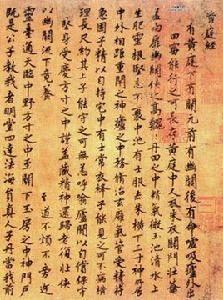 黄庭經
上有黄庭下有關元前有幽闕後有命門噓吸廬外出
入丹田審能行之可長存黄庭中人衣朱衣關門壯籥
蓋兩扉幽闕俠之高巍巍丹田之中精氣微玉池清水上
生肥靈根堅志不衰中池有士服赤朱横下三寸神所居
中外相距重閉之神廬之中務脩治玄膺氣管受精符
急固子精以自持宅中有士常衣絳子能見之可不病横
理長尺約其上子能守之可無恙呼噏廬間以自償保守
完堅身受慶方寸之中謹蓋藏精神還歸老復壯俠
以幽闕流下竟養 至道不煩不旁迕
靈臺通天臨中野方寸之中至關下玉房之中神門户
既是公子教我者明堂四達法海源真人子丹當我前